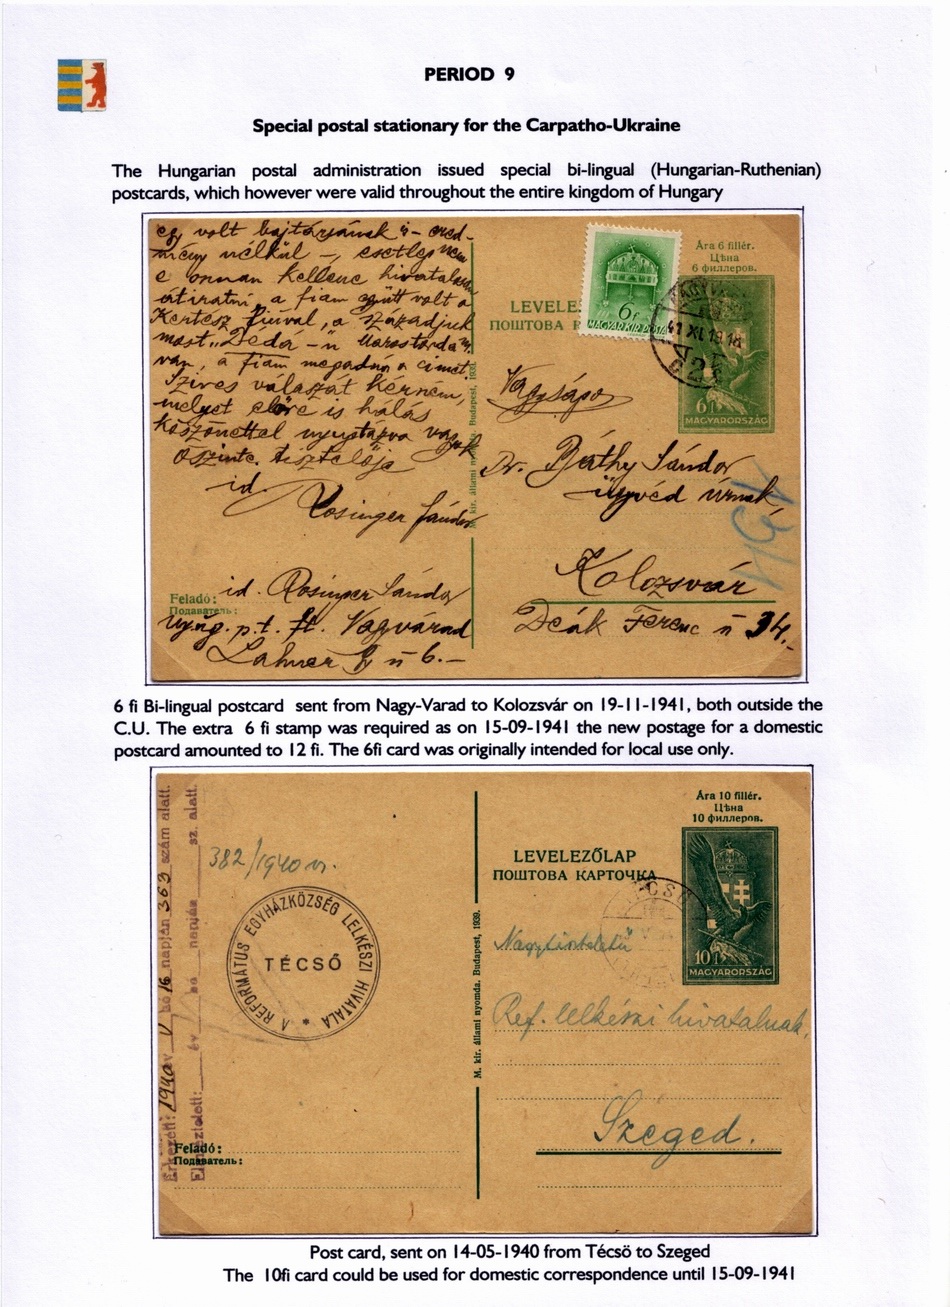 PERIOD 9
Special postal stationary for the Carpatho-Ukraine
The Hungarian postal administration issued special bi-lingual (Hungarian-Ruthenian)
postcards, which however were valid throughout the entire kingdom of Hungary
egy volt bajtársának is – ered-
mény nélkül –, esetleg nem
e onnan kellene hivatalosan
átiratni, a fiam együtt volt a
Kertész fiúval, a századjuk
most „Déda"-n Marostorda m.
van, a fiam megadná a címet.
Szives válaszát kérném,
melyet előre is hálás
köszönettel nyugtázva vagyok
őszinte tisztelője
id.
Rosinger Sándor
Feladó: id. Rosinger Sándor
Подаватель:
nyug. p.t. ft. Nagyvárad
Lahner Gy u 6.–
M. kir. állami nyomda. Budapest, 1939.
Ára 6 fillér.
Цѣна
6 филлеров.
LEVELE
ПОШТОВА К
6f
MAGYAR KIR. POSTA
41 XI. 19. 18
6f
MAGYARORSZÁG
Nagyságos
Dr. Báthy Sándor
ügyvéd úrnak
Kolozsvár
Deák Ferenc u 34.–
6 fi Bi-lingual postcard sent from Nagy-Varad to Kolozsvár on 19-11-1941, both outside the
C.U. The extra 6 fi stamp was required as on 15-09-1941 the new postage for a domestic
postcard amounted to 12 fi. The 6fi card was originally intended for local use only.
Érkezett: 1940 év V hó 16 napján 363 szám alatt.
Elintéztetett: év hó napján sz. alatt.
382/1940 sz.
A REFORMÁTUS EGYHÁZKÖZSÉG LELKÉSZI HIVATALA
TÉCSŐ
Feladó:
Подаватель:
M. kir. állami nyomda. Budapest, 1939.
Ára 10 fillér.
Цѣна
10 филлеров.
LEVELEZŐLAP
ПОШТОВА КАРТОЧКА
TÉCSŐ
10f
MAGYARORSZÁG
Nagytiszteletű
Ref. lelkészi hivatalnak,
Szeged.
Post card, sent on 14-05-1940 from Técsö to Szeged
The 10fi card could be used for domestic correspondence until 15-09-1941